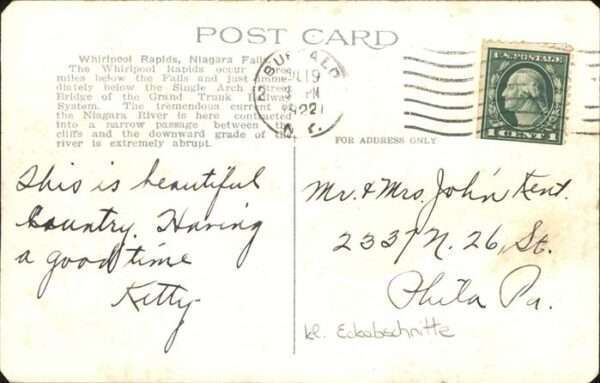 POST CARD
Whirlpool Rapids, Niagara Falls
The Whirlpool Rapids occur three
miles below the Falls and just imme-
diately below the Single Arch Street
Bridge of the Grand Trunk Railway
System. The tremendous current of
the Niagara River is here contracted
into a narrow passage between the
cliffs and the downward grade of the
river is extremely abrupt.
BUFFALO
19
PM
1922
N. Y.
U.S. POSTAGE
1 CENT 1
FOR ADDRESS ONLY
This is beautiful
country. Having
a good time
Kitty-
Mr. & Mrs. John Kent.
2337 N. 26, St.
Phila Pa.
kl. Eckabschnitte